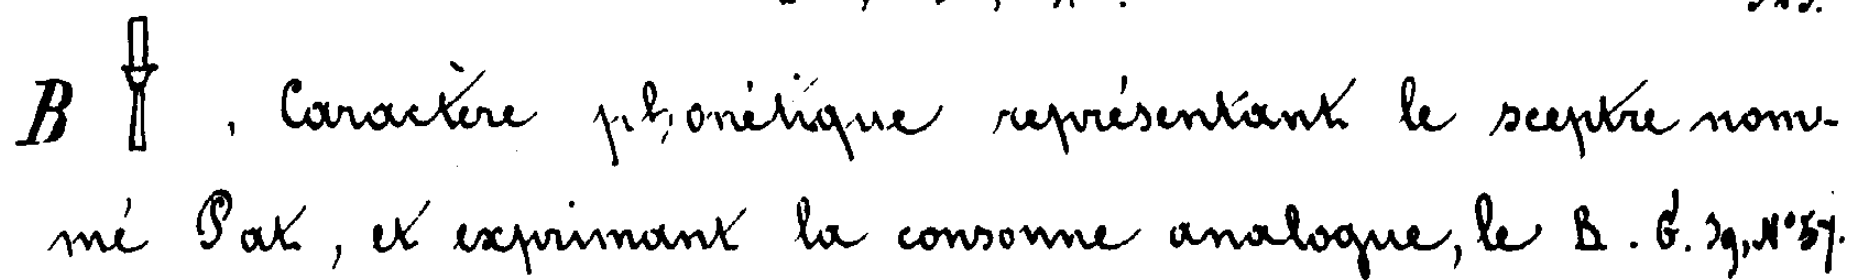 B 𓌂, Caractère phonétique représentant le sceptre nom-
mé Pat, et exprimant la consonne analogue, le B. G. 39, N° 57.